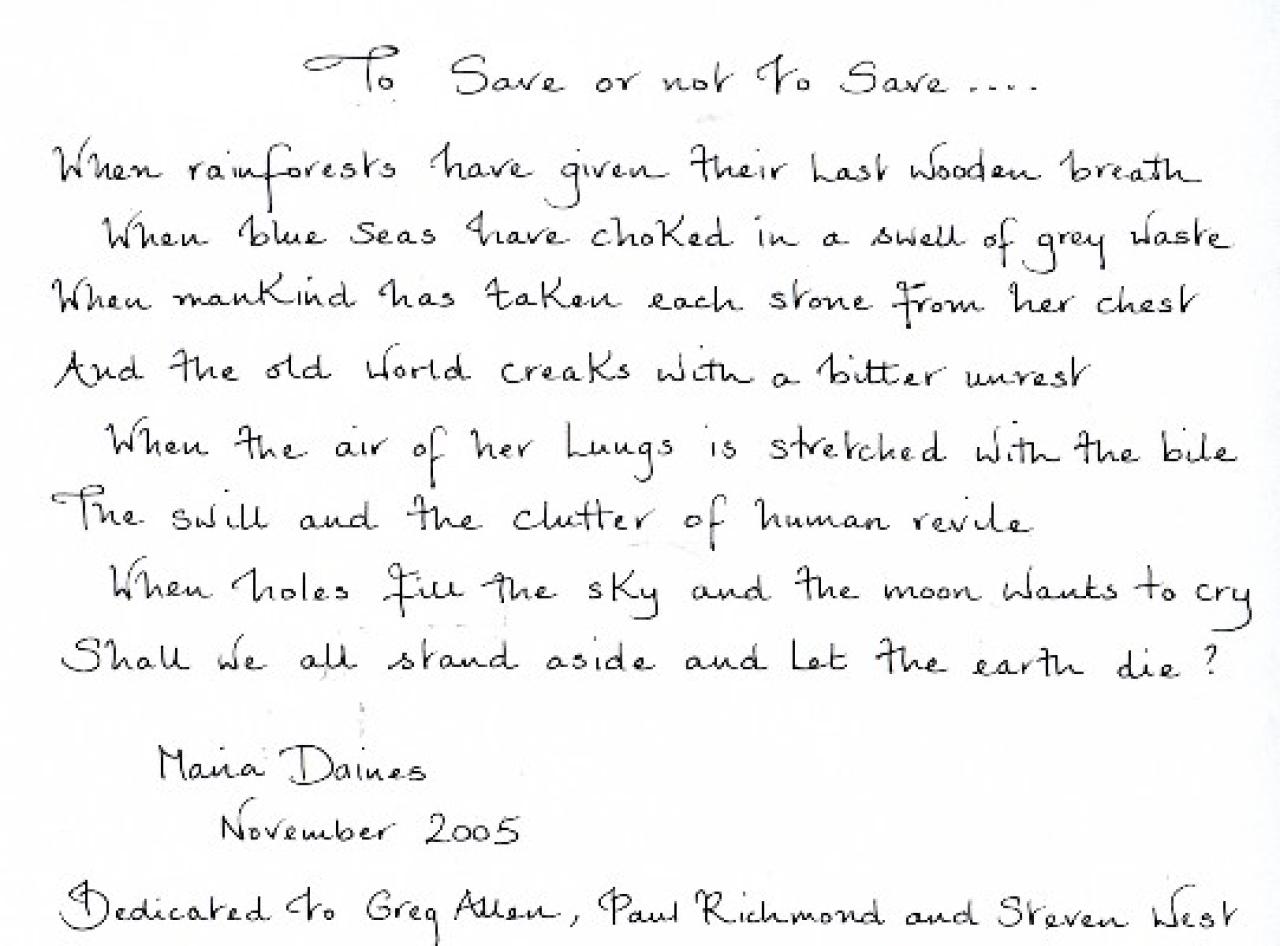 To Save or not to Save....
When rainforests have given their last wooden breath
When blue seas have choked in a swell of grey waste
When mankind has taken each stone from her chest
And the old world creaks with a bitter unrest
When the air of her lungs is stretched with the bile
The swill and the clutter of human revile
When holes fill the sky and the moon wants to cry
Shall we all stand aside and let the earth die?
Maria Daines
November 2005
Dedicated to Greg Allen, Paul Richmond and Steven West